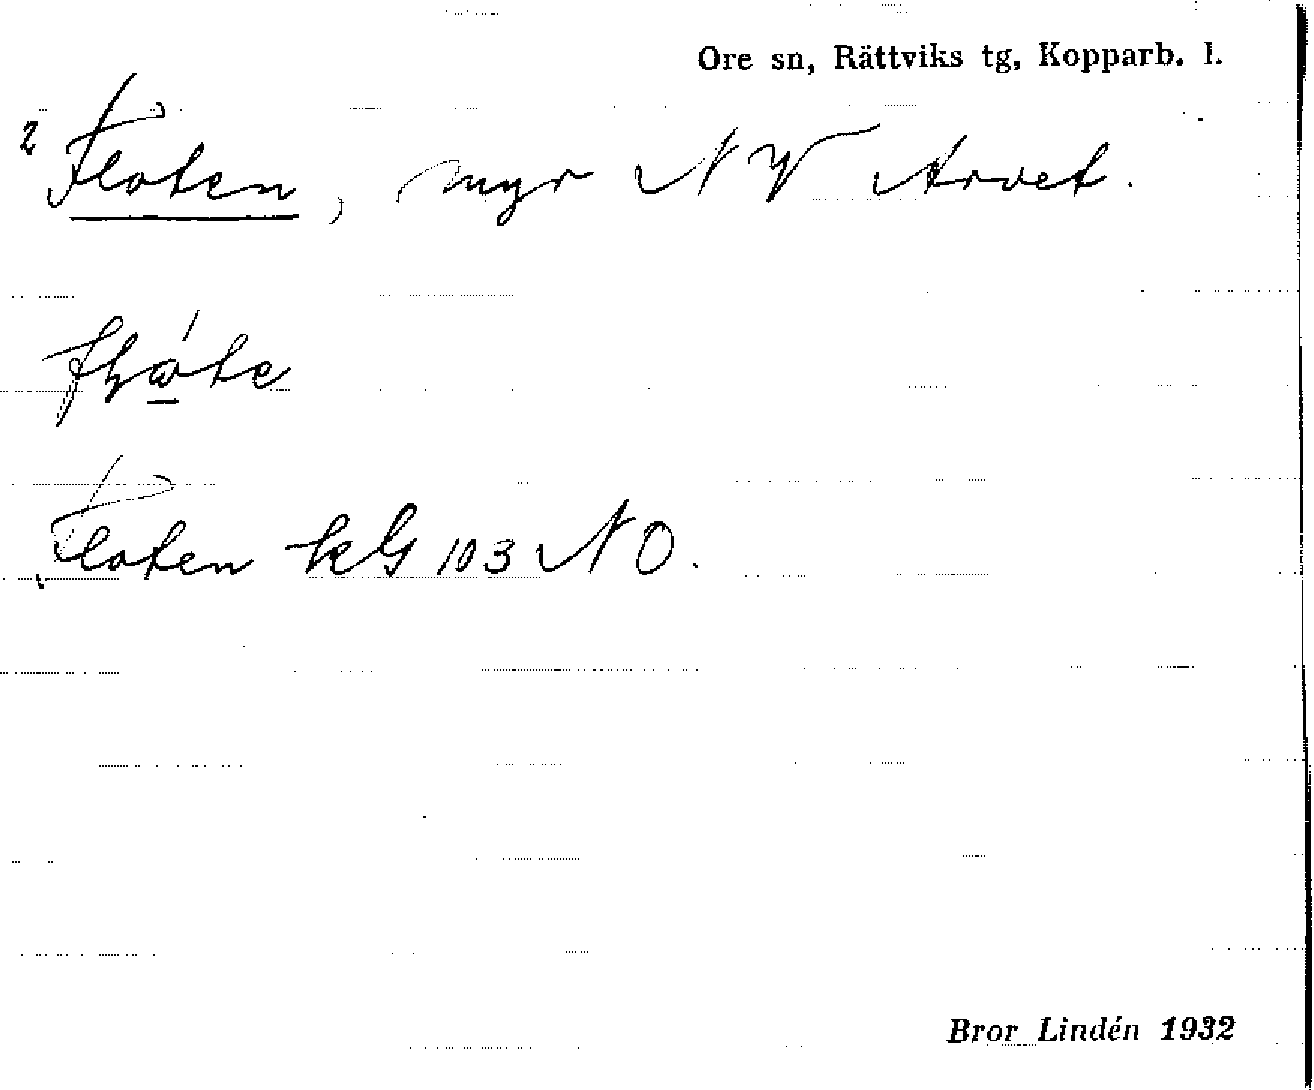 Ore sn, Rättviks tg, Kopparb. l.
2 Floten, myr NV Arvet.
Floten kG 103 NO.
Bror Lindén 1932